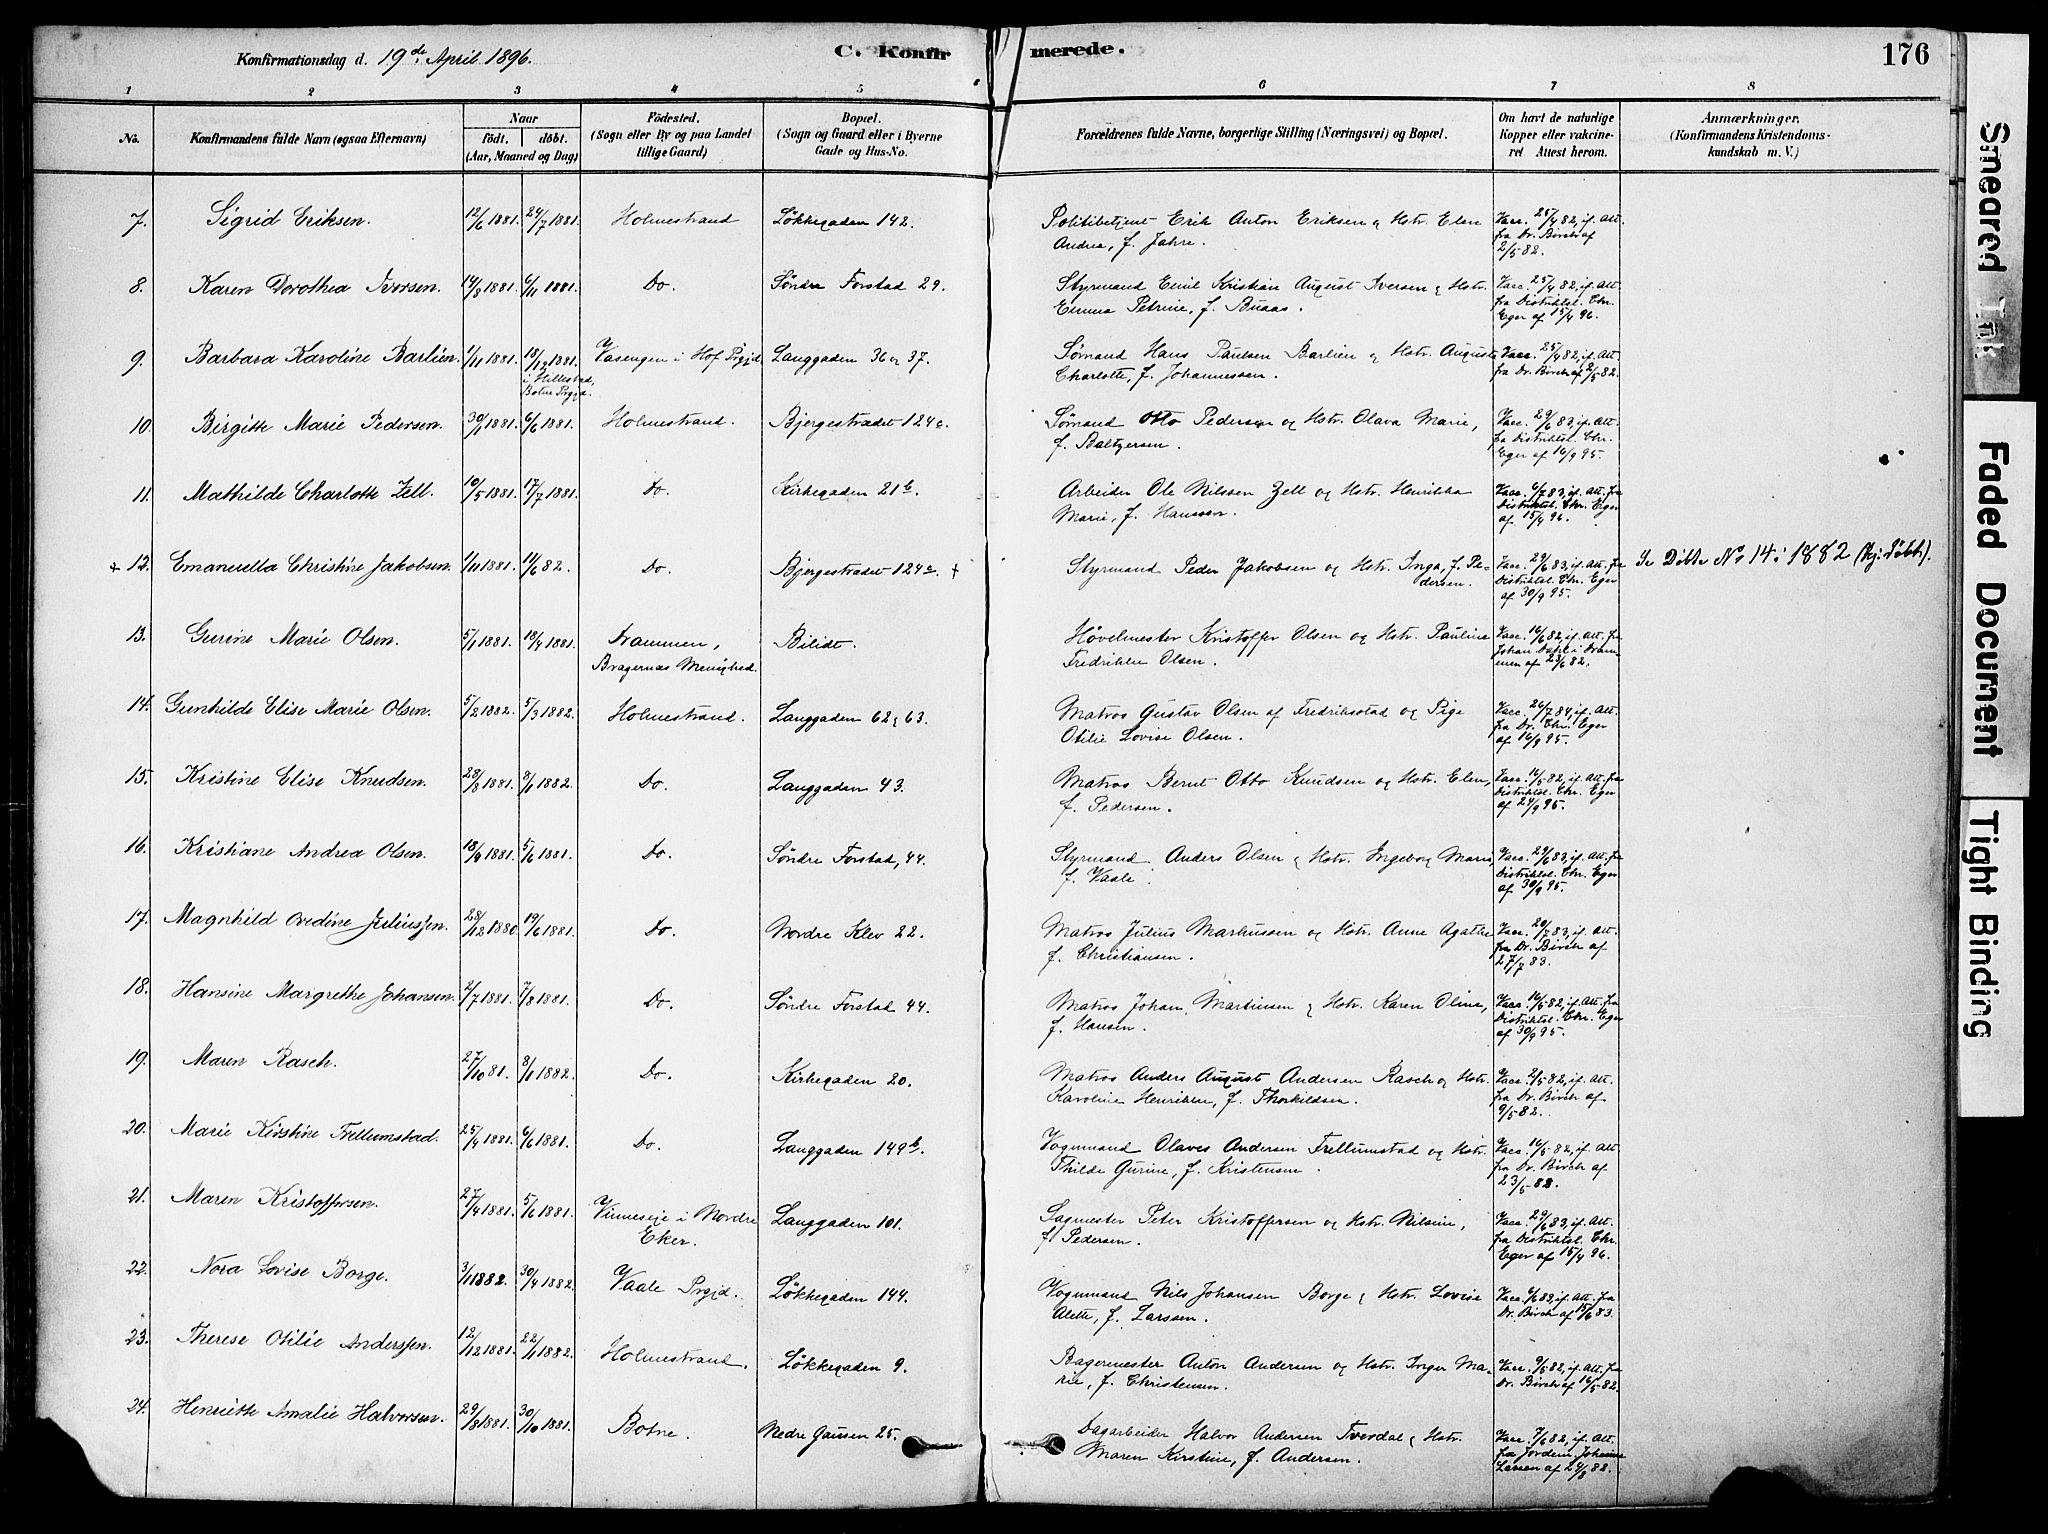 Konfirmationsdag d. 19de April 1896.
C. Konfirmerede.
176
1 2 3 4 5 6 6 7 8
No. Konfirmandens fulde Navn (ogsaa Efternavn) Naar født. døbt. (Aar, Maaned og Dag) Fødested. (Sogn eller By og paa Landet tillige Gaard) Bopæl. (Sogn og Gaard eller i Byerne Gade og Hus-No. Forældrenes fulde Navne, borgerlige Stilling (Næringsvei) og Bopæl. Om havt de naturlige Kopper eller vakcineret Attest herom. Anmærkninger. (Konfirmandens Kristendomskundskab m. V.)
7. Sigrid Eriksen. 12/6 1881. 24/7 1881. Holmestrand Løkkegaden 142. Politibetjent Erik Anton Eriksen og Hstr. Elen Vacc. 25/4 82, if. Att.
Andrea, f. Jahre. fra Dr. Børch af
2/5 82.
8. Karen Dorothea Iversen. 14/8 1881. 6/11 1881. Do. Søndre Forstad 29. Styrmand Emil Kristian August Iversen og Hstr. Vacc. 25/4 82, if. Att.
Emma Petrine, f. Buaas. fra Distriktsl. Chr.
Eger af 15/4 96.
9. Barbara Karoline Barlien. 1/11 1881. 18/12 1881. Vasengen i Hof Prgjd. Langgaden 36 og 37. Sømand Hans Paulsen Barlien og Hstr. Auguste Vacc. 25/4 82, if. Att.
i Hillestad, Charlotte, f. Johannessen. fra Dr. Børch af 2/5 82.
Botne Prgjd.
10. Birgitte Marie Pedersen. 30/1 1881. 6/6 1881. Holmestrand. Bjergestrædet 124c. Sømand Otto Pedersen og Hstr. Olava Marie, Vacc. 29/6 83, if. Att.
f. Baltzersen. fra Distriktsl. Chr.
Eger af 16/9 95.
11. Mathilde Charlotte Zell. 10/5 1881. 17/7 1881. Do. Kirkegaden 21b. Arbeider Ole Nilssen Zell og Hstr. Henrikka Vacc. 6/7 83, if. Att. fra
Marie, f. Hanssen. Distriktsl. Chr. Eger
af 15/4 96.
+ 12. Emanuella Christine Jakobsen. 1/11 1881. 11/6 82. Do. Bjergestrædet 124c. + Styrmand Peder Jakobsen og Hstr. Inga, f. Pe- Vacc. 29/6 83, if. Att. fra Se Døbte No 14 i 1882 (hj. døbt).
dersen. Distriktsl. Chr. Eger
af 30/9 95.
13. Gurine Marie Olsen. 5/1 1881. 18/4 1881. Drammen, Bilidt. Høvelmester Kristoffer Olsen og Hstr. Pauline Vacc. 16/6 82, if. Att. fra
Bragernæs Menighed. Fredrikke Olsen. Johan i Dram-
men af 23/6 82.
14. Gunhilde Elise Marie Olsen. 5/2 1882. 5/3 1882. Holmestrand. Langgaden 62 og 63. Matros Gustav Olsen af Fredriksstad og Pige Vacc. 26/7 84, if. Att.
Otilie Lovise Olsen. fra Dr. Chr. Eger
af 16/9 95.
15. Kristine Elise Knudsen. 28/8 1881. 8/1 1882. Do. Langgaden 43. Matros Bernt Otto Knudsen og Hstr. Elen, Vacc. 16/5 82, if. Att. fra
f. Pedersen. Distriktsl. Chr. Eger
af 24/9 95.
16. Kristiane Andrea Olsen. 18/4 1881. 5/6 1881. Do. Søndre Forstad, 44. Styrmand Anders Olsen og Hstr. Ingeborg Marie, Vacc. 29/6 83, if. Att. fra
f. Vaale. Distriktsl. Chr. Eger
af 30/9 95.
17. Magnhild Ovedine Juliussen. 28/12 1880. 19/6 1881. Do. Nordre Klev 22. Matros Julius Markussen og Hstr. Anne Agathe Vacc. 20/7 83, if. Att.
f. Christiansen. fra Dr. Børch af
27/7 83.
18. Hansine Margrethe Johansen. 2/7 1881. 7/8 1881. Do. Søndre Forstad 44. Matros Johan Martinsen og Hstr. Karen Oline, Vacc. 16/5 82, if. Att. fra
f. Hansen. Distriktsl. Chr. Eger
af 30/9 95.
19. Maren Rasch. 27/10 81. 8/1 1882. Do. Kirkegaden 20. Matros Anders August Andersen Rasch og Hstr. Vacc. 2/5 82, if. Att.
Karoline Henrikke, f. Thorkildsen. fra Dr. Børch af
9/5 82.
20. Marie Kirstine Trellumstad. 25/4 1881. 6/6 1881. Do. Langgaden 149b. Vognmand Olaves Andersen Trellumstad og Hstr. Vacc. 16/5 82, if. Att.
Thilde Gurine, f. Kristensen. fra Dr. Børch af
23/5 82.
21. Maren Kristoffersen. 27/4 1881. 5/6 1881. Vinneseje i Nordre Langgaden 101. Sagmester Peter Kristoffersen og Hstr. Nilsine, Vacc. 29/6 83, if. Att.
Eker. f. Pedersen. fra Distriktsl. Chr.
Eger af 15/4 96.
22. Nora Lovise Borge. 3/1 1882. 30/4 1882. Vaale Prgjd. Løkkegaden 144. Vognmand Nils Johansen Borge og Hstr. Lovise Vacc. 6/6 83, if. Att. fra
Alette, f. Larssen. Dr. Børch af 15/6 83.
23. Therese Otilie Anderssen. 12/12 1881. 22/1 1882. Holmestrand. Løkkegaden 9. Bagermester Anton Andersen og Hstr. Inger Ma- Vacc. 9/5 82, if. Att. fra
rie, f. Christensen. Dr. Børch af 16/5 82.
24. Henriette Amalie Halvorsen. 29/8 1881. 30/10 1881. Botne. Nedre Gausen 25. Dagarbeider Halvor Andersen Tverdal og Hstr. Vacc. 7/6 82, if. Att.
Maren Kirstine, f. Andersen. fra Jordem. Johanne
Larsen af 24/8 88.
Smeared Ink
Faded Document
Tight Binding